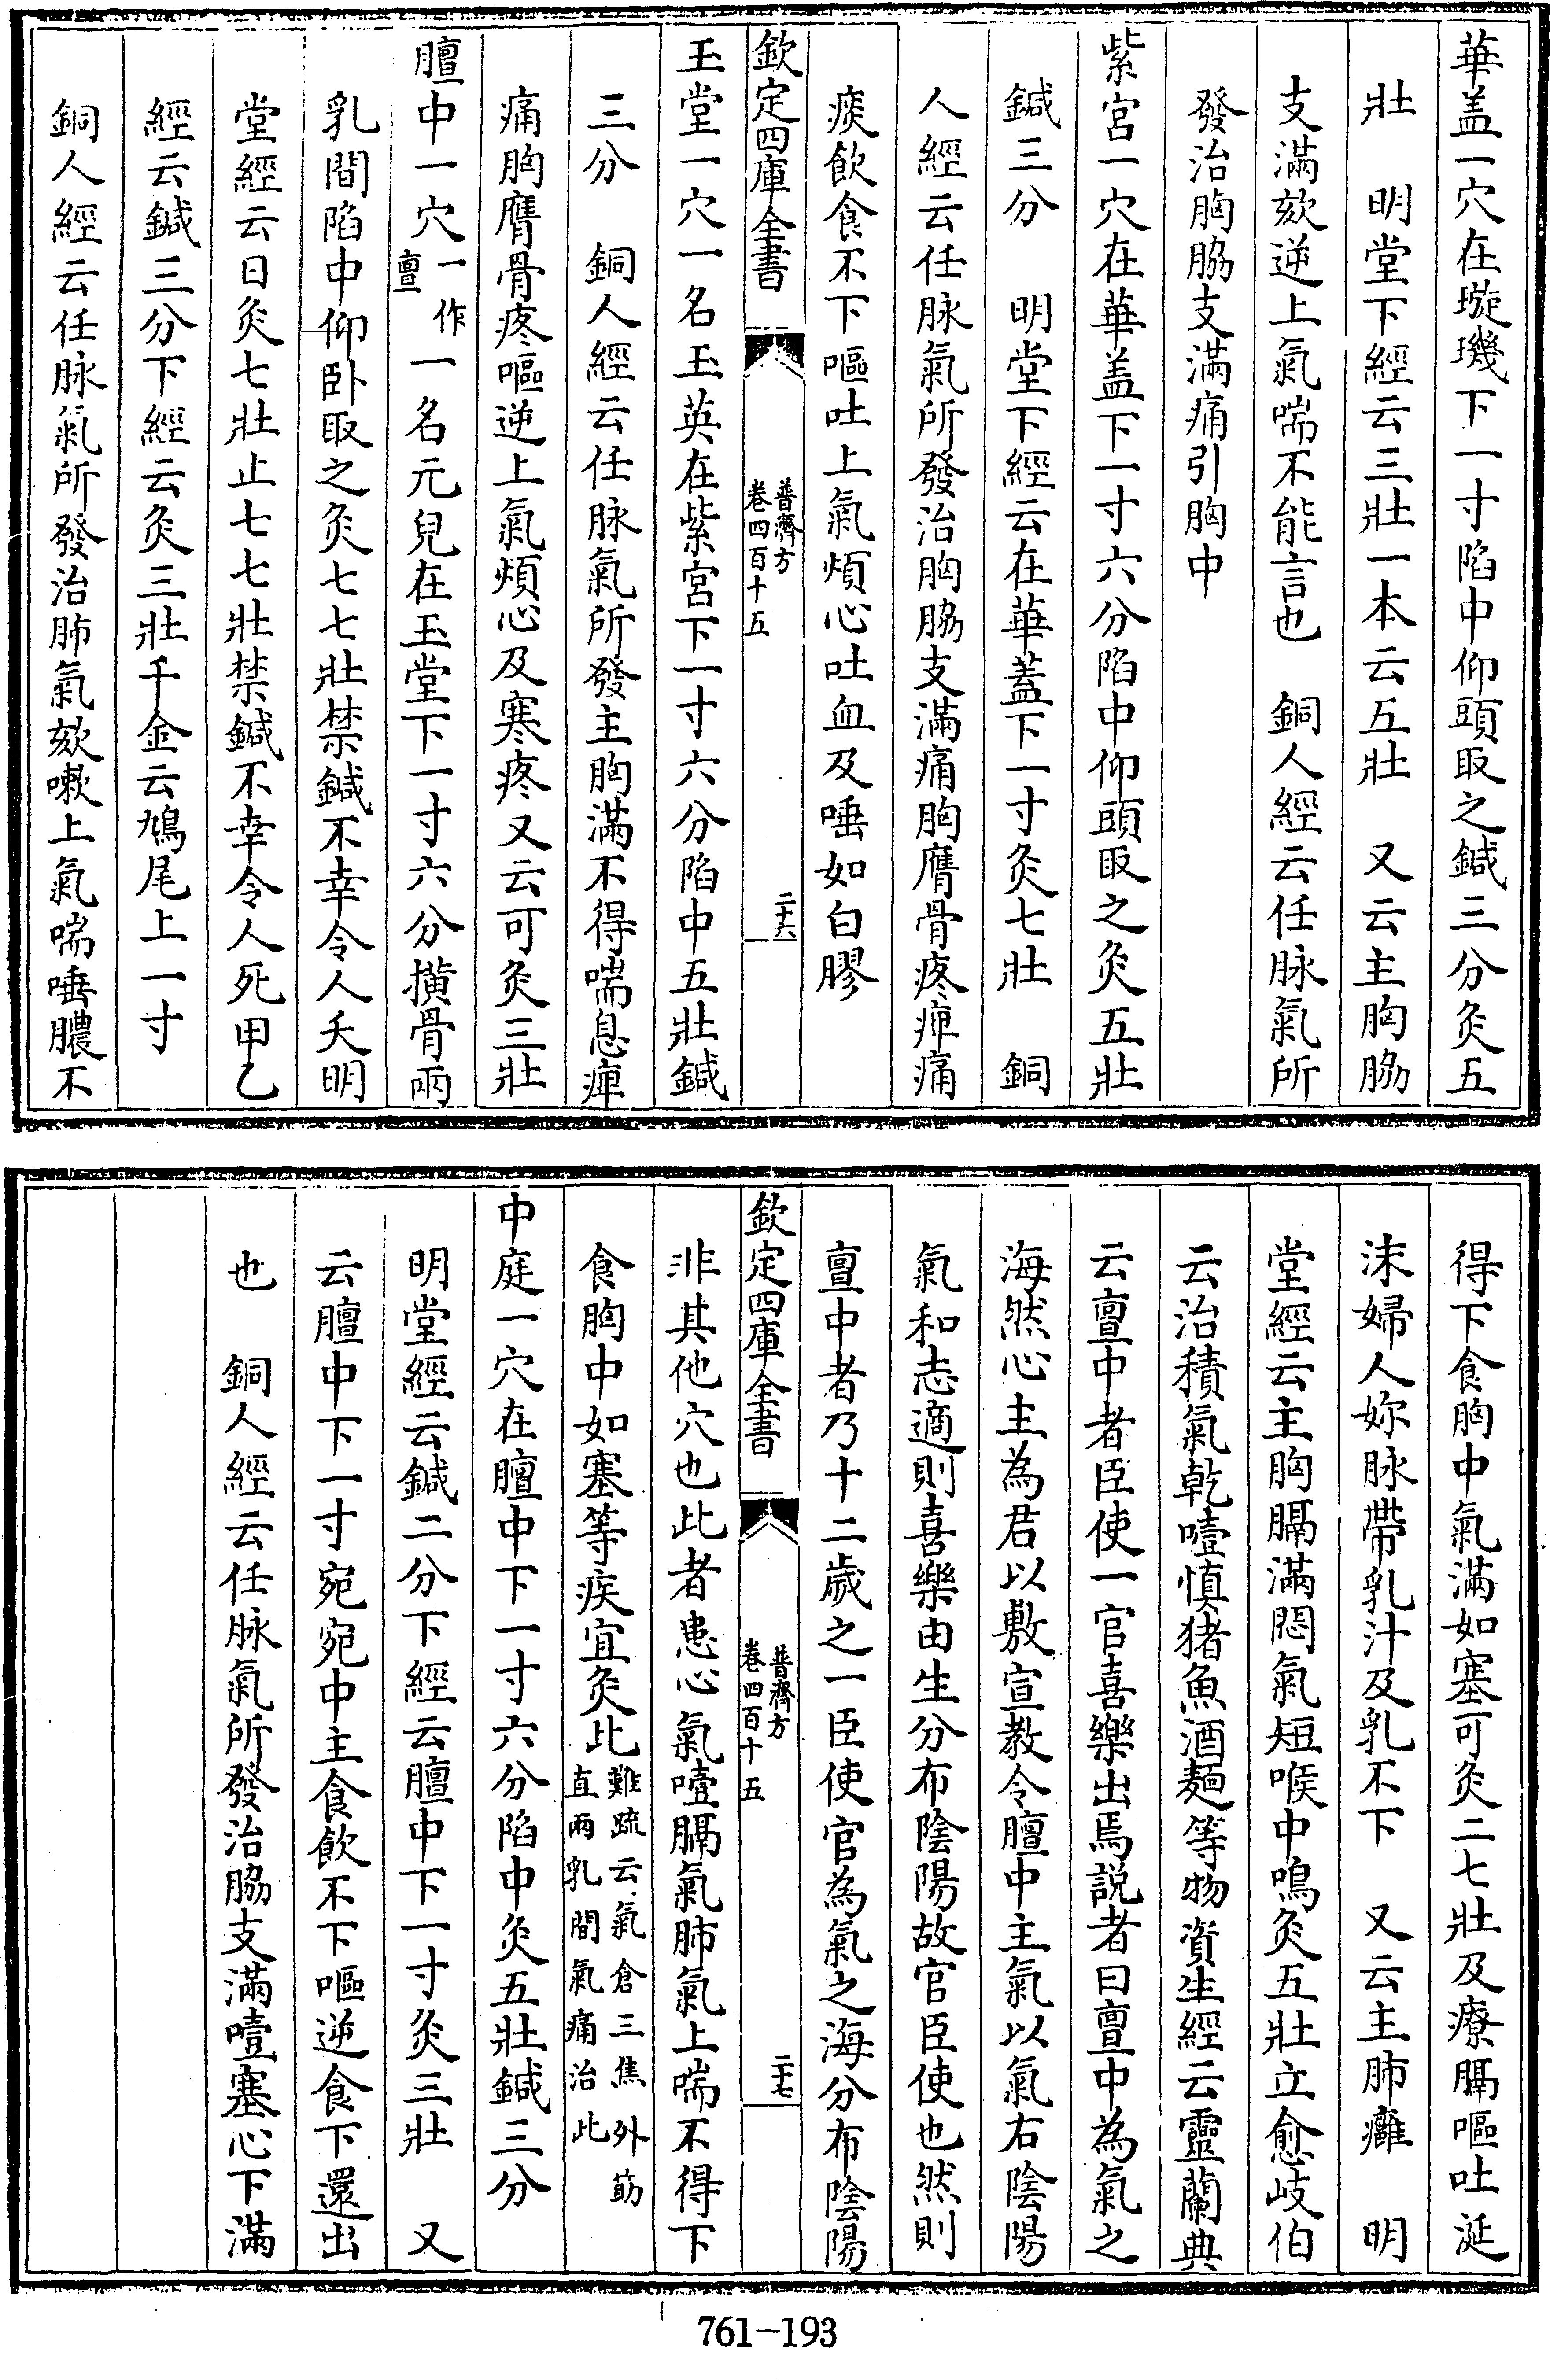 華盖一穴在璇璣下一寸陷中仰頭取之鍼三分灸五
壯　明堂下經云三壯一本云五壯　又云主胸脇
支滿欬逆上氣喘不能言也　銅人經云任脉氣所
發治胸脇支滿痛引胸中
紫宮一穴在華盖下一寸六分陷中仰頭取之灸五壯
鍼三分　明堂下經云在華蓋下一寸灸七壯　銅
人經云任脉氣所發治胸脇支滿痛胸膺骨疼痺痛
痰飲食不下嘔吐上氣煩心吐血及唾如白膠
欽定四庫全書
普濟方
卷四百十五
二十六
玉堂一穴一名玉英在紫宮下一寸六分陷中五壯鍼
三分　銅人經云任脉氣所發主胸滿不得喘息痺
痛胸膺骨疼嘔逆上氣煩心及寒疼又云可灸三壯
膻中一穴一作亶一名元兒在玉堂下一寸六分橫骨兩
乳間陷中仰卧取之灸七七壯禁鍼不幸令人夭明
堂經云日灸七壯止七七壯禁鍼不幸令人死甲乙
經云鍼三分下經云灸三壯千金云鳩尾上一寸
銅人經云任脉氣所發治肺氣欬嗽上氣喘唾膿不
得下食胸中氣滿如塞可灸二七壯及療膈嘔吐涎
沫婦人妳脉帶乳汁及乳不下　又云主肺癰　明
堂經云主胸膈滿悶氣短喉中鳴灸五壯立愈岐伯
云治積氣乾噎慎猪魚酒麵等物資生經云靈蘭典
云亶中者臣使一官喜樂出焉説者曰亶中為氣之
海然心主為君以敷宣教令膻中主氣以氣右陰陽
氣和志適則喜樂由生分布陰陽故官臣使也然則
亶中者乃十二歲之一臣使官為氣之海分布陰陽
欽定四庫全書
普濟方
卷四百十五
二十七
非其他穴也此者患心氣噎膈氣肺氣上喘不得下
食胸中如塞等疾宜灸此難疏云氣倉三焦外筋直兩乳間氣痛治此
中庭一穴在膻中下一寸六分陷中灸五壯鍼三分
明堂經云鍼二分下經云膻中下一寸灸三壯　又
云膻中下一寸宛宛中主食飲不下嘔逆食下還出
也　銅人經云任脉氣所發治脇支滿噎塞心下滿
761-193